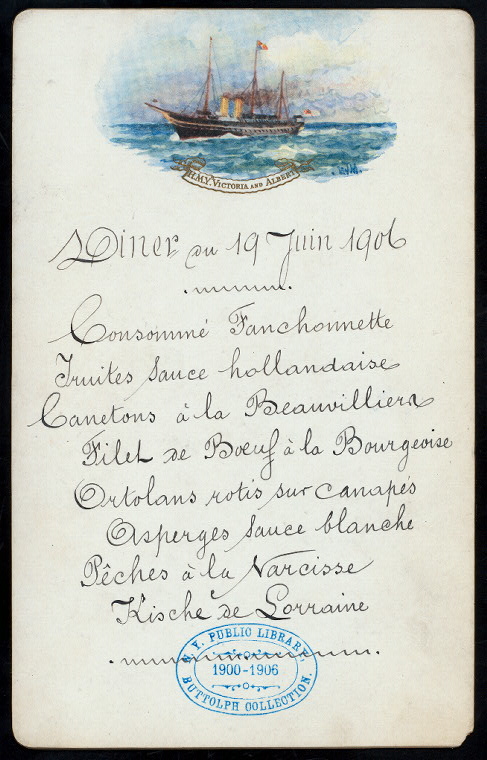 H.M.Y. VICTORIA AND ALBERT
Diner du 19 Juin 1906
Consommé Fanchonnette
Truites Sauce hollandaise
Canetons à la Beauvilliers
Filet de Bœuf à la Bourgeoise
Ortolans rotis sur canapés
Asperges Sauce blanche
Pêches à la Narcisse
Kische de Lorraine
N.Y. PUBLIC LIBRARY,
1900-1906
BUTTOLPH COLLECTION.